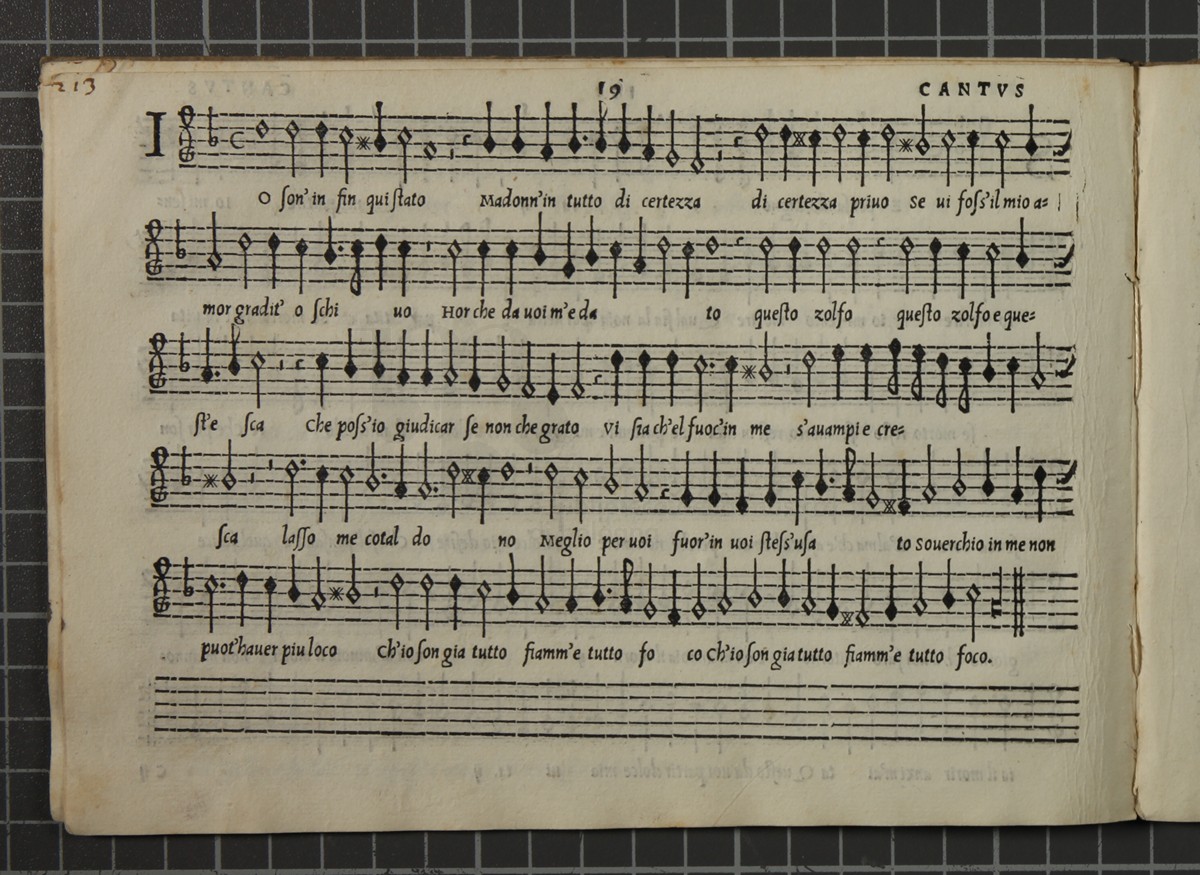 213
19 CANTVS
I
O son' in fin qui stato Madonn'in tutto di certezza di certezza priuo Se ui foss'il mio a=
mor gradit' o schi uo Hor che da uoi m'e da to questo zolfo questo zolfo e que=
st'e sca Che poss'io giudicar se non che grato Vi sia ch'el fuoc'in me s'auampi e cre=
sca lasso me cotal do no Meglio per uoi fuor'in uoi stess'usa to Souerchio in me non
puot'hauer piu loco Ch'io son gia tutto fiamm'e tutto fo co Ch'io son gia tutto fiamm'e tutto foco.